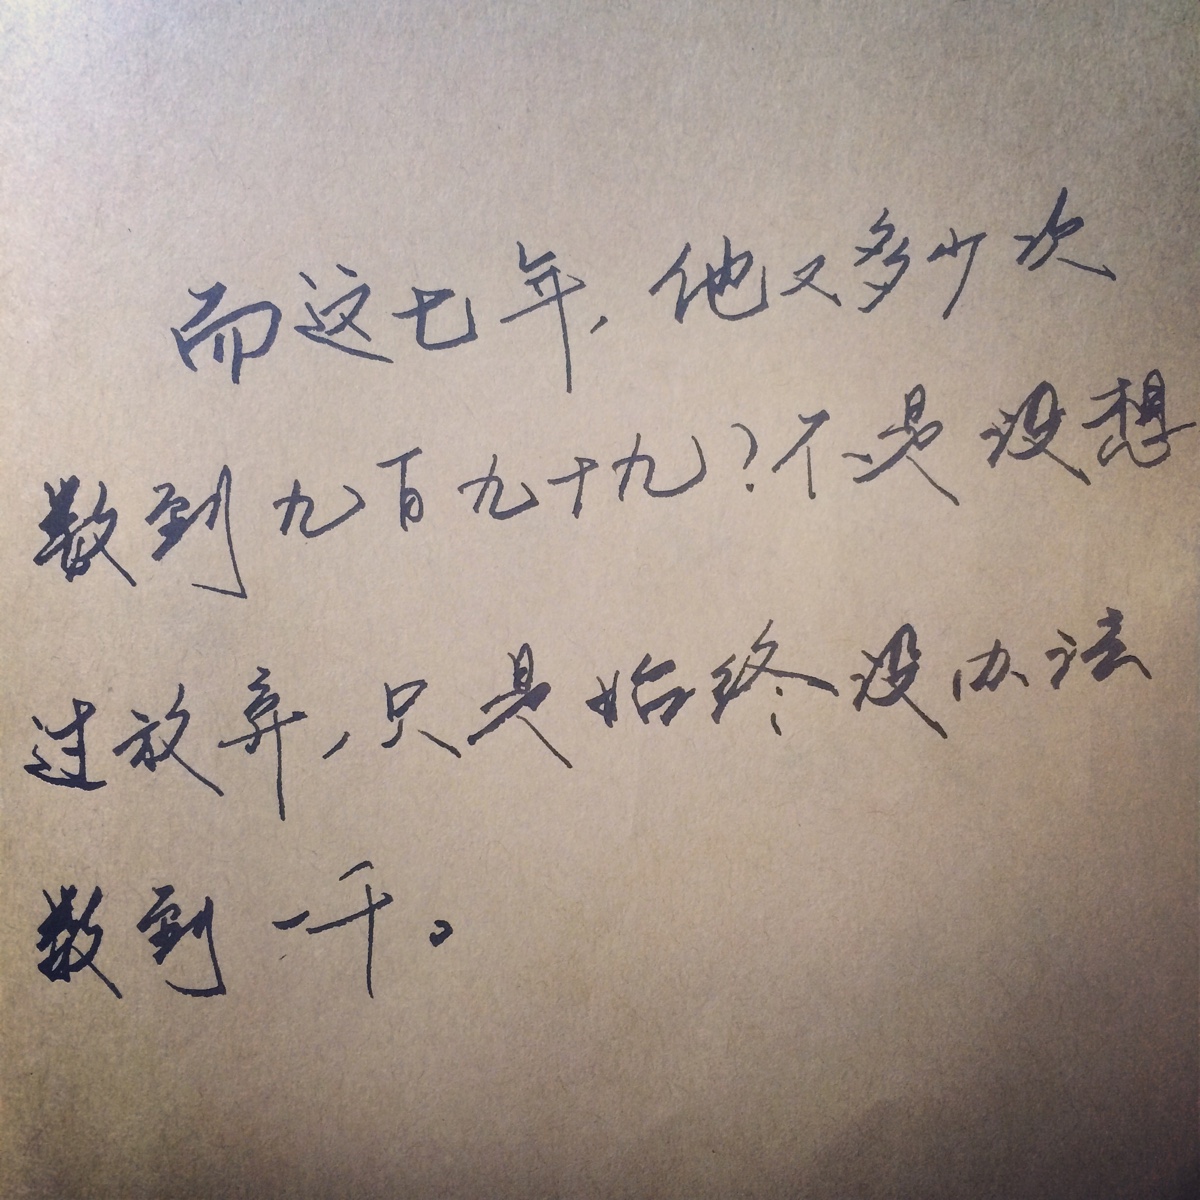 而这七年，他又多少次
数到九百九十九？不是没想
过放弃，只是始终没办法
数到一千。